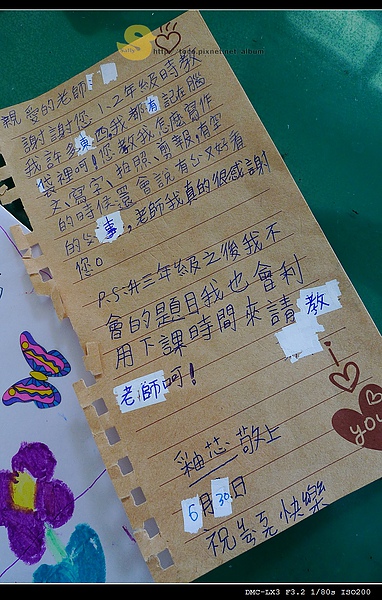 親愛的老師:
謝謝您1、2年級時教
我許多東西我都有記在腦
袋裡呵!您教我怎麼寫作
文、寫字、拍照、剪報,有空
的時候還會說有ㄑ又好看
的女事,老師我真的很感謝
您。
P.S.升三年級之後我不
會的題目我也會利
用下課時間來請教
老師呵!
釉芯 敬上
6月30.日
祝 快樂
i
you
http://tace.pixnet.net/album
DMC-LX3 F3.2 1/80s ISO200